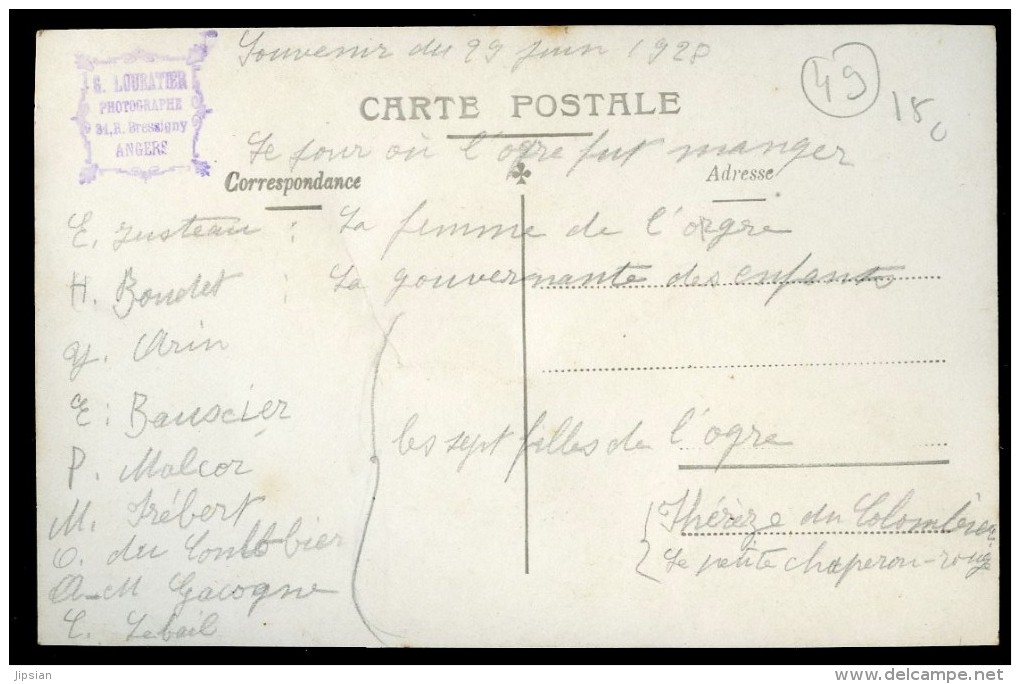 Souvenir du 29 juin 1928
G. LOUBATIER
PHOTOGRAPHE
34, R. Bressigny
ANGERS
49
18
CARTE POSTALE
Le jour où l'ogre fut manger
Correspondance
Adresse
E. Justeau : La femme de l'ogre
H. Boudet : La gouvernante des enfants
Y. Arin
E. Bauscier
les sept filles de l'ogre
P. Malcor
M. Frébert
O. du Coulombier
A-M Gacogne
C. Lebail
Thérèze du Colombier
Le petite chaperon-rouge
jipsian
delcampe.net